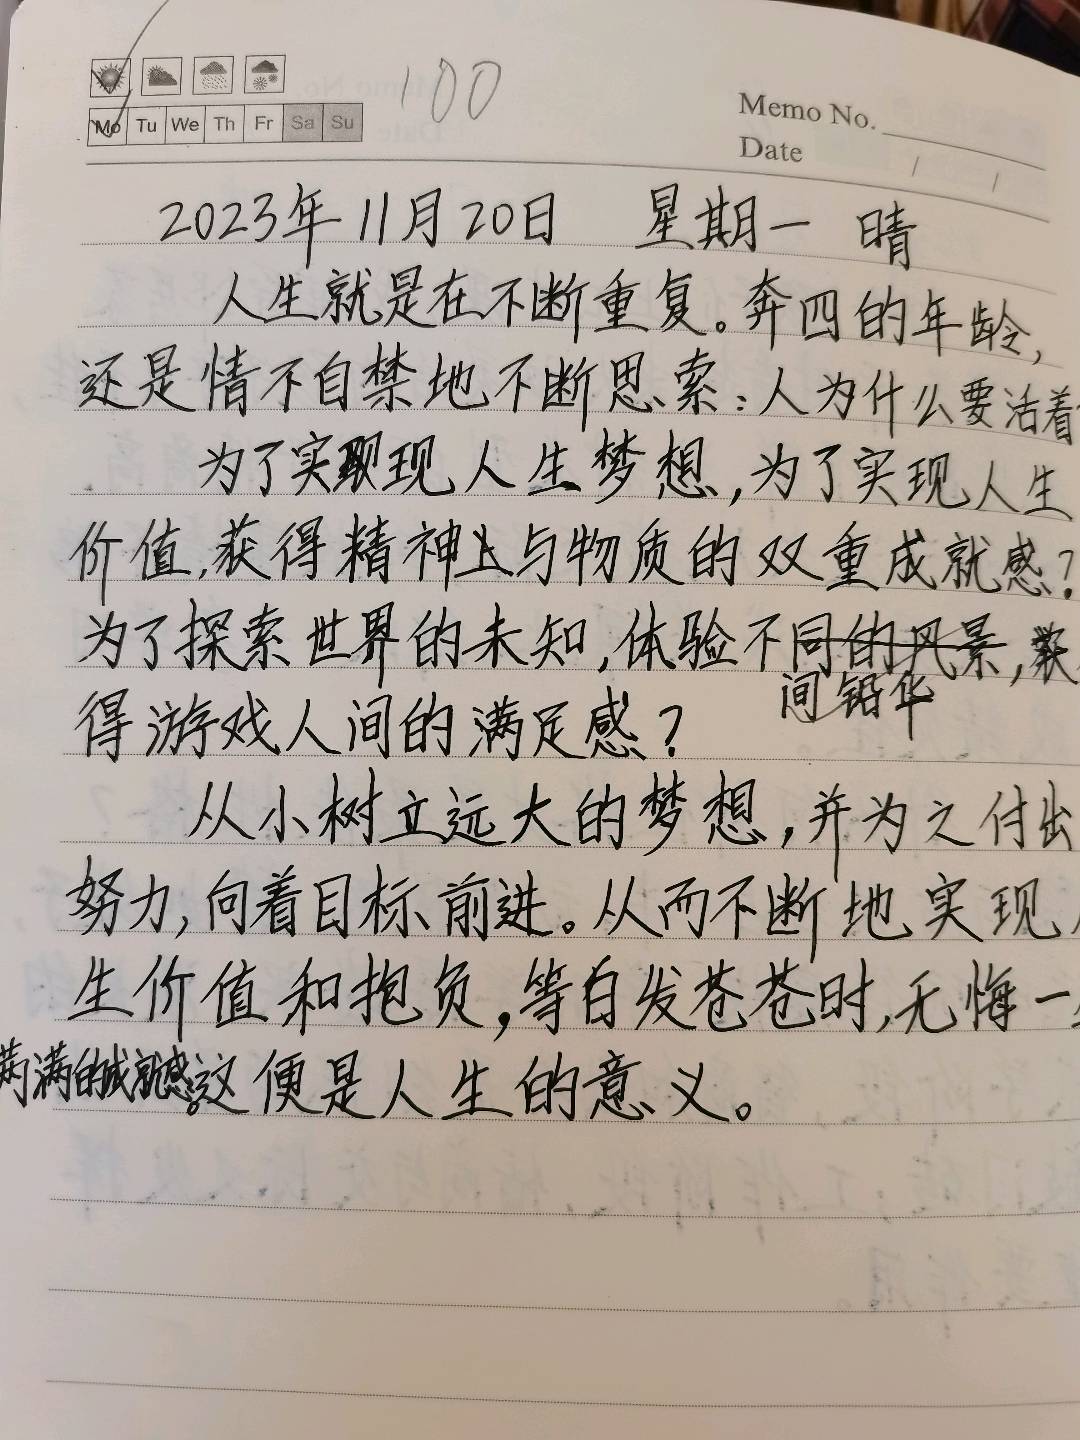 100
Mo Tu We Th Fr Sa Su
Memo No.
Date / /
2023年11月20日 星期一 晴
人生就是在不断重复。奔四的年龄,
还是情不自禁地不断思索:人为什么要活着
为了实现人生梦想,为了实现人生
价值,获得精神上与物质的双重成就感?
为了探索世界的未知,体验不同的风景,获
间铅华
得游戏人间的满足感?
从小树立远大的梦想,并为之付出
努力,向着目标前进。从而不断地实现
生价值和抱负,等白发苍苍时,无悔一
满满的成就感。这便是人生的意义。